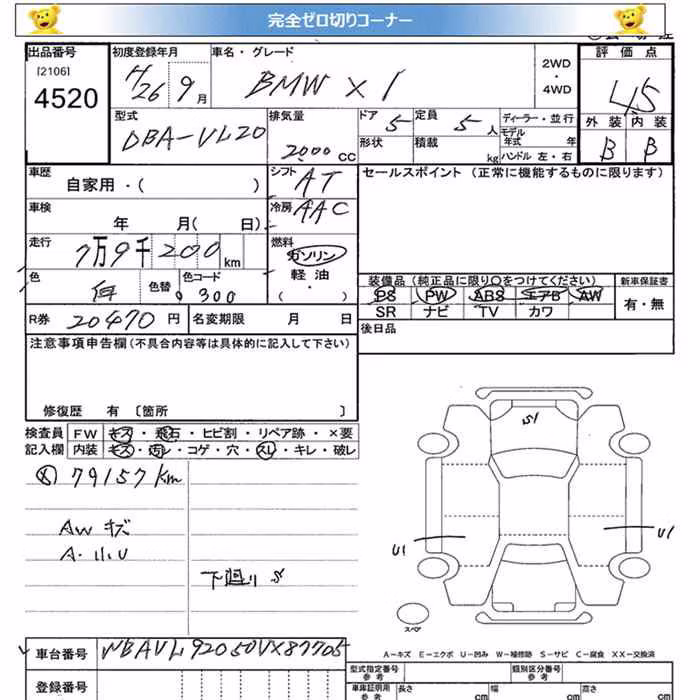 完全ゼロ切りコーナー
出品番号 初度登録年月 車名・グレード 評価点
[2106] 4520
H26 9月 BMW X1 2WD・4WD 4.5
型式 排気量 ドア 5 定員 5人 ディーラー・並行 外装 内装
DBA-VL20 2000cc 形状 積載 kg モデル年式 年 ハンドル 左・右 B B
車歴 シフト AT セールスポイント (正常に機能するものに限ります)
自家用・( )
車検 冷房 AAC
年 月( 日)
走行 燃料
7万9千200km ガソリン
色 色替 色コード 軽油
白 300 ( ・ )
装備品(純正品に限り○をつけてください) 新車保証書
PS PW ABS エアB AW 有・無
SR ナビ TV カワ
R券 20470円 名変期限 月 日 後日品
注意事項申告欄(不具合内容等は具体的に記入して下さい)
修復歴 有 〔箇所 〕
検査員 FW キズ・飛石・ヒビ割・リペア跡・×要
記入欄 内装 キズ・汚レ・コゲ・穴・スレ・キレ・破レ
79157km
AWキズ
A・小U
下廻りS
S1
U1
U1
スペア
A-キズ E-エクボ U-凹み W-補修跡 S-サビ C-腐食 XX-交換済
車台番号 WBAVL92050VX87705
型式指定番号 参考 類別区分番号 参考
登録番号
車庫証明用 参考 長さ cm 幅 cm 高さ cm